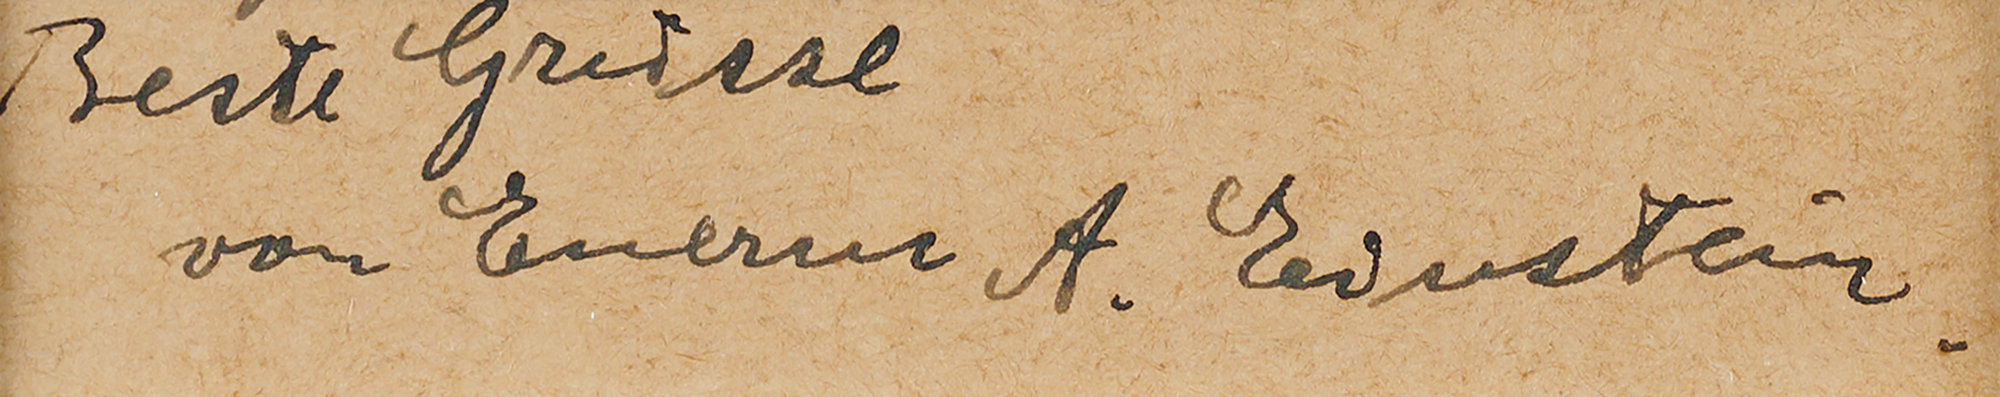 Beste Grüsse
von Euerm A. Einstein.